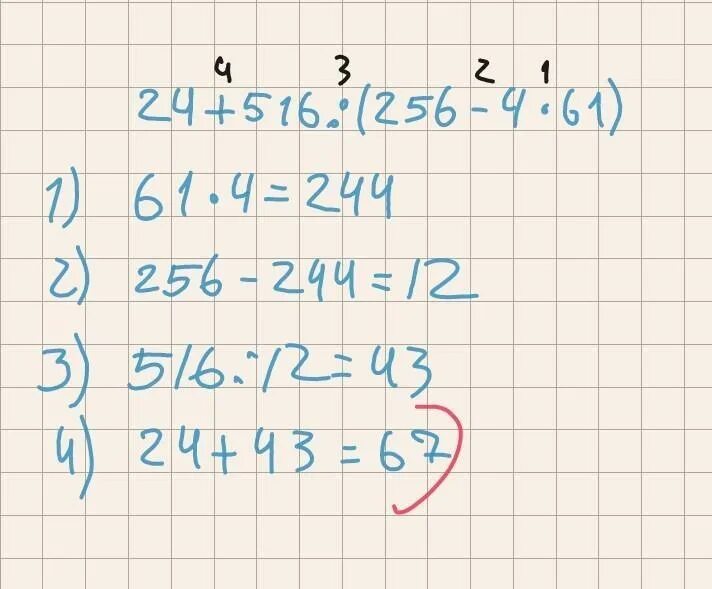 4 3 2 1
24+516:(256-4·61)
1) 61·4=244
2) 256-244=12
3) 516:12=43
4) 24+43=67